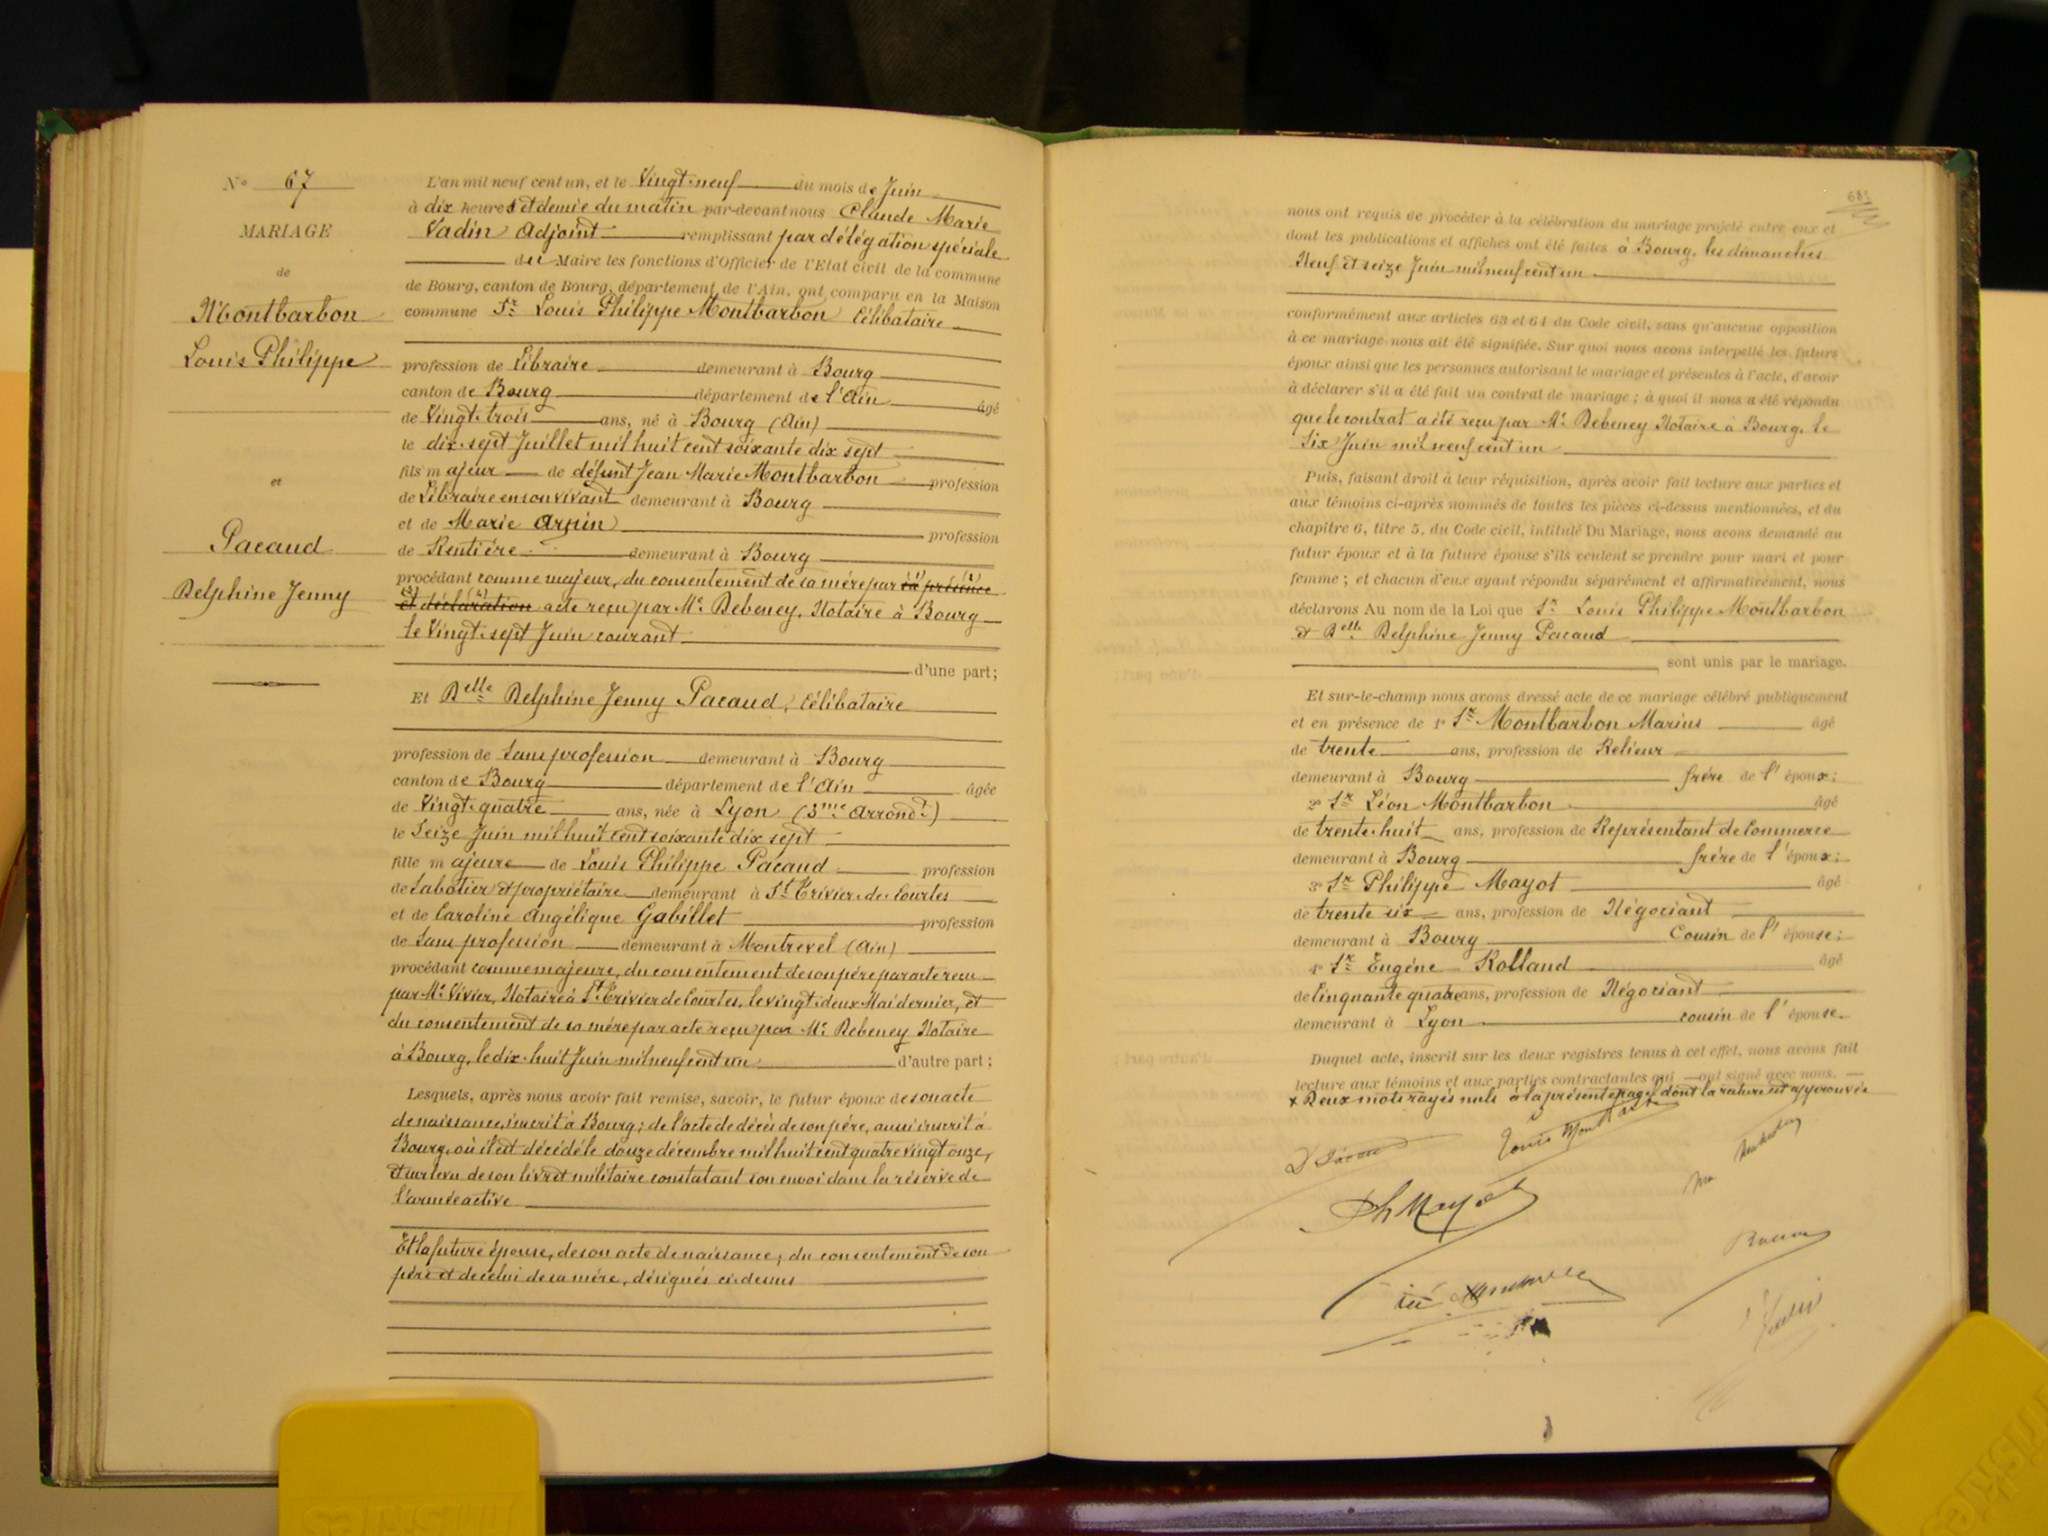 N° 67
MARIAGE
de
Montbarbon
Louis Philippe
et
Pacaud
Delphine Jenny
L'an mil neuf cent un, et le Vingt-neuf du mois de Juin
à dix heures et demie du matin par-devant nous Claude Marie
Vadin Adjoint remplissant par délégation spéciale
du Maire les fonctions d'Officier de l'Etat civil de la commune
de Bourg, canton de Bourg, département de l'Ain, ont comparu en la Maison
commune Sr Louis Philippe Montbarbon Célibataire
profession de Libraire demeurant à Bourg
canton de Bourg département de l'Ain âgé
de Vingt-trois ans, né à Bourg (Ain)
le dix-sept Juillet mil huit cent soixante dix sept
fils majeur de défunt Jean Marie Montbarbon profession
de Libraire en son vivant demeurant à Bourg
et de Marie Arpin profession
de Rentière demeurant à Bourg
procédant comme majeur, du consentement de sa mère par sa présence
et déclaration acte reçu par Me Debeney, Notaire à Bourg
le Vingt-sept Juin courant
d'une part;
Et Delle Delphine Jenny Pacaud, Célibataire
profession de Sans profession demeurant à Bourg
canton de Bourg département de l'Ain âgée
de Vingt-quatre ans, née à Lyon (3me Arrondt)
le Seize Juin mil huit cent soixante dix sept
fille majeure de Louis Philippe Pacaud profession
de Sabotier et propriétaire demeurant à St Trivier-de-Courtes
et de Caroline Angélique Gabillet profession
de Sans profession demeurant à Montrevel (Ain)
procédant comme majeure, du consentement de son père par acte reçu
par Me Vivier, Notaire à St Trivier de Courtes, le vingt-deux Mai dernier, et
du consentement de sa mère par acte reçu par Me Debeney Notaire
à Bourg, le dix-huit Juin mil neuf cent un d'autre part;
Lesquels, après nous avoir fait remise, savoir, le futur époux de son acte
de naissance, inscrit à Bourg; de l'acte de décès de son père, aussi inscrit à
Bourg, où il est décédé le douze décembre mil huit cent quatre vingt onze,
et sur le vu de son livret militaire constatant son envoi dans la réserve de
l'armée active
Et la future épouse, de son acte de naissance; du consentement de son
père et de celui de sa mère, désignés ci-dessus
68
nous ont requis de procéder à la célébration du mariage projeté entre eux et
dont les publications et affiches ont été faites à Bourg, les dimanches
Neuf et seize Juin mil neuf cent un
conformément aux articles 63 et 64 du Code civil, sans qu'aucune opposition
à ce mariage nous ait été signifiée. Sur quoi nous avons interpellé les futurs
époux ainsi que les personnes autorisant le mariage et présentes à l'acte, d'avoir
à déclarer s'il a été fait un contrat de mariage; à quoi il nous a été répondu
que le contrat a été reçu par Me Debeney Notaire à Bourg, le
Six Juin mil neuf cent un
Puis, faisant droit à leur réquisition, après avoir fait lecture aux parties et
aux témoins ci-après nommés de toutes les pièces ci-dessus mentionnées, et du
chapitre 6, titre 5, du Code civil, intitulé Du Mariage, nous avons demandé au
futur époux et à la future épouse s'ils veulent se prendre pour mari et pour
femme; et chacun d'eux ayant répondu séparément et affirmativement, nous
déclarons Au nom de la Loi que Sr Louis Philippe Montbarbon
et Delle Delphine Jenny Pacaud
sont unis par le mariage.
Et sur-le-champ nous avons dressé acte de ce mariage célébré publiquement
et en présence de 1° Sr Montbarbon Marius âgé
de trente ans, profession de Relieur
demeurant à Bourg frère de l'époux;
2° Sr Léon Montbarbon âgé
de trente-huit ans, profession de Représentant de Commerce
demeurant à Bourg frère de l'époux;
3° Sr Philippe Mayot âgé
de trente six ans, profession de Négociant
demeurant à Bourg Cousin de l'épouse;
4° Sr Eugène Rolland âgé
de Cinquante quatre ans, profession de Négociant
demeurant à Lyon cousin de l'épouse.
Duquel acte, inscrit sur les deux registres tenus à cet effet, nous avons fait
lecture aux témoins et aux parties contractantes qui ont signé avec nous.
+ Deux mots rayés nuls à la présente page dont la rature est approuvée
Ph Mayot